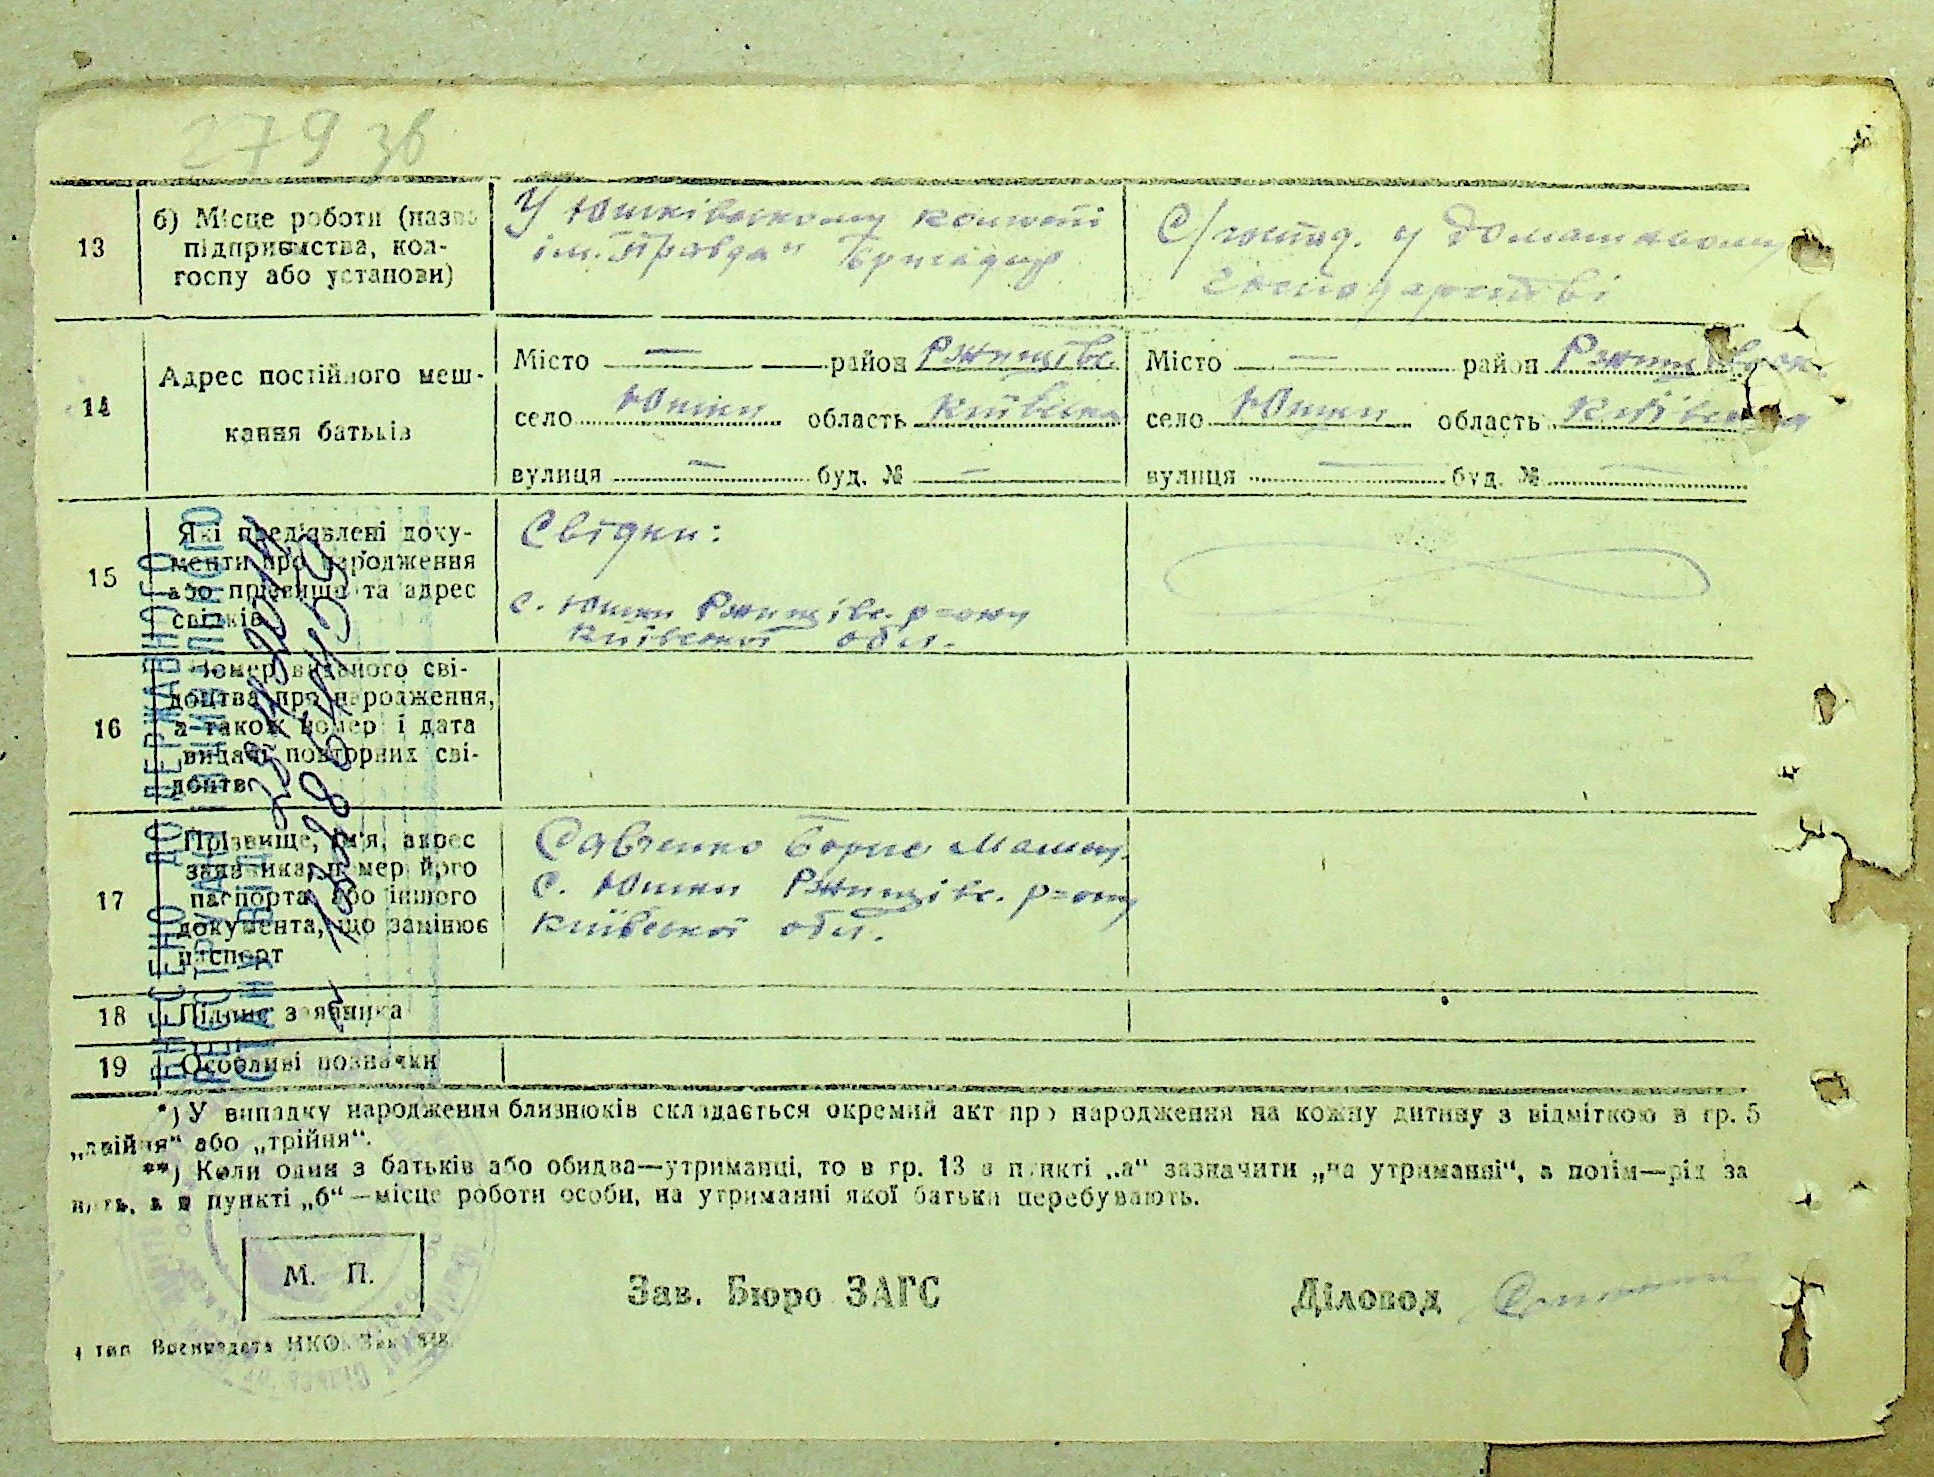 279 зв
13
б) Місце роботи (назва
підприємства, кол-
госпу або установи)
У Юшківському колгоспі
ім. "Правда" Бригадир
С/господ. у домашньому
господарстві
14
Адрес постійного меш-
кання батьків
Місто — район Ржищівс.
село Юшки область Київська
вулиця — буд. № —
Місто — район Ржищівськ.
село Юшки область Київська
вулиця — буд. № —
15
Які пред'явлені доку-
менти про народження
або прізвища та адрес
свідків
Свідки:
с. Юшки Ржищівс. р=ону
Київської обл.
16
Номер виданого сві-
доцтва про народження,
а також номер і дата
видачі повторних сві-
доцтв
17
Прізвище, ім'я, адрес
заявника, номер його
паспорта або іншого
документа, що замінює
паспорт
Савченко Борис
с. Юшки Ржищівс. р=ону
Київської обл.
18
Підпис заявника
19
Особливі позначки
ВНЕСЕНО ДО ДЕРЖАВНОГО
РЕЄСТРУ АКТІВ ЦИВІЛЬНОГО
СТАНУ
*) У випадку народження близнюків складається окремий акт про народження на кожну дитину з відміткою в гр. 5
„двійня“ або „трійня“.
**) Коли один з батьків або обидва—утриманці, то в гр. 13 в пункті „а“ зазначити „на утриманні“, а потім—рід за
нять, а в пункті „б“—місце роботи особи, на утриманні якої батьки перебувають.
М. П.
Зав. Бюро ЗАГС
Діловод
4 тип. Воениздата НКО. Зак.